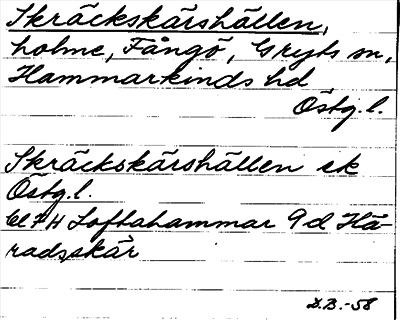 Skräckskärshällen,
holme, Fångö, Gryts sn,
Hammarkinds hd
Östg. l.
Skräckskärshällen sk
Östg. l.
Loftahammar 9d Hä-
radsskär
D.B.-58